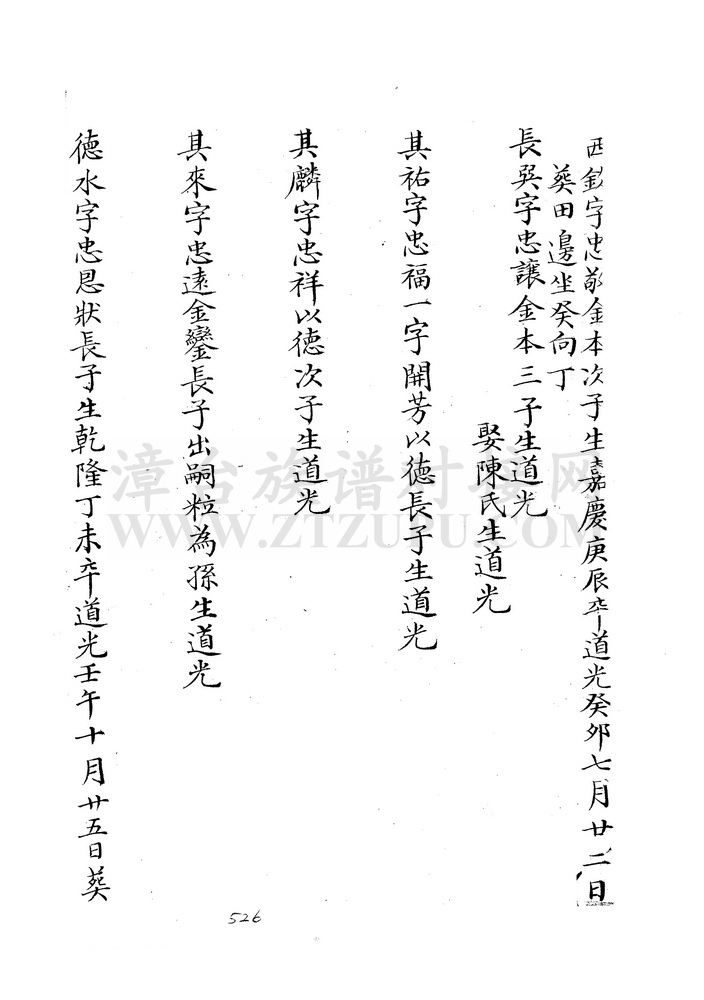 西欽字忠敬金本次子生嘉慶庚辰卒道光癸卯七月廿二日
葬田邊坐癸向丁
長巽字忠讓金本三子生道光
娶陳氏生道光
其祐字忠福一字開芳以德長子生道光
其麟字忠祥以德次子生道光
其來字忠遠金鑾長子出嗣粒為孫生道光
德水字忠恩狀長子生乾隆丁未卒道光壬午十月廿五日葬
526
漳台族谱对接网
WWW.ZTZUPU.COM